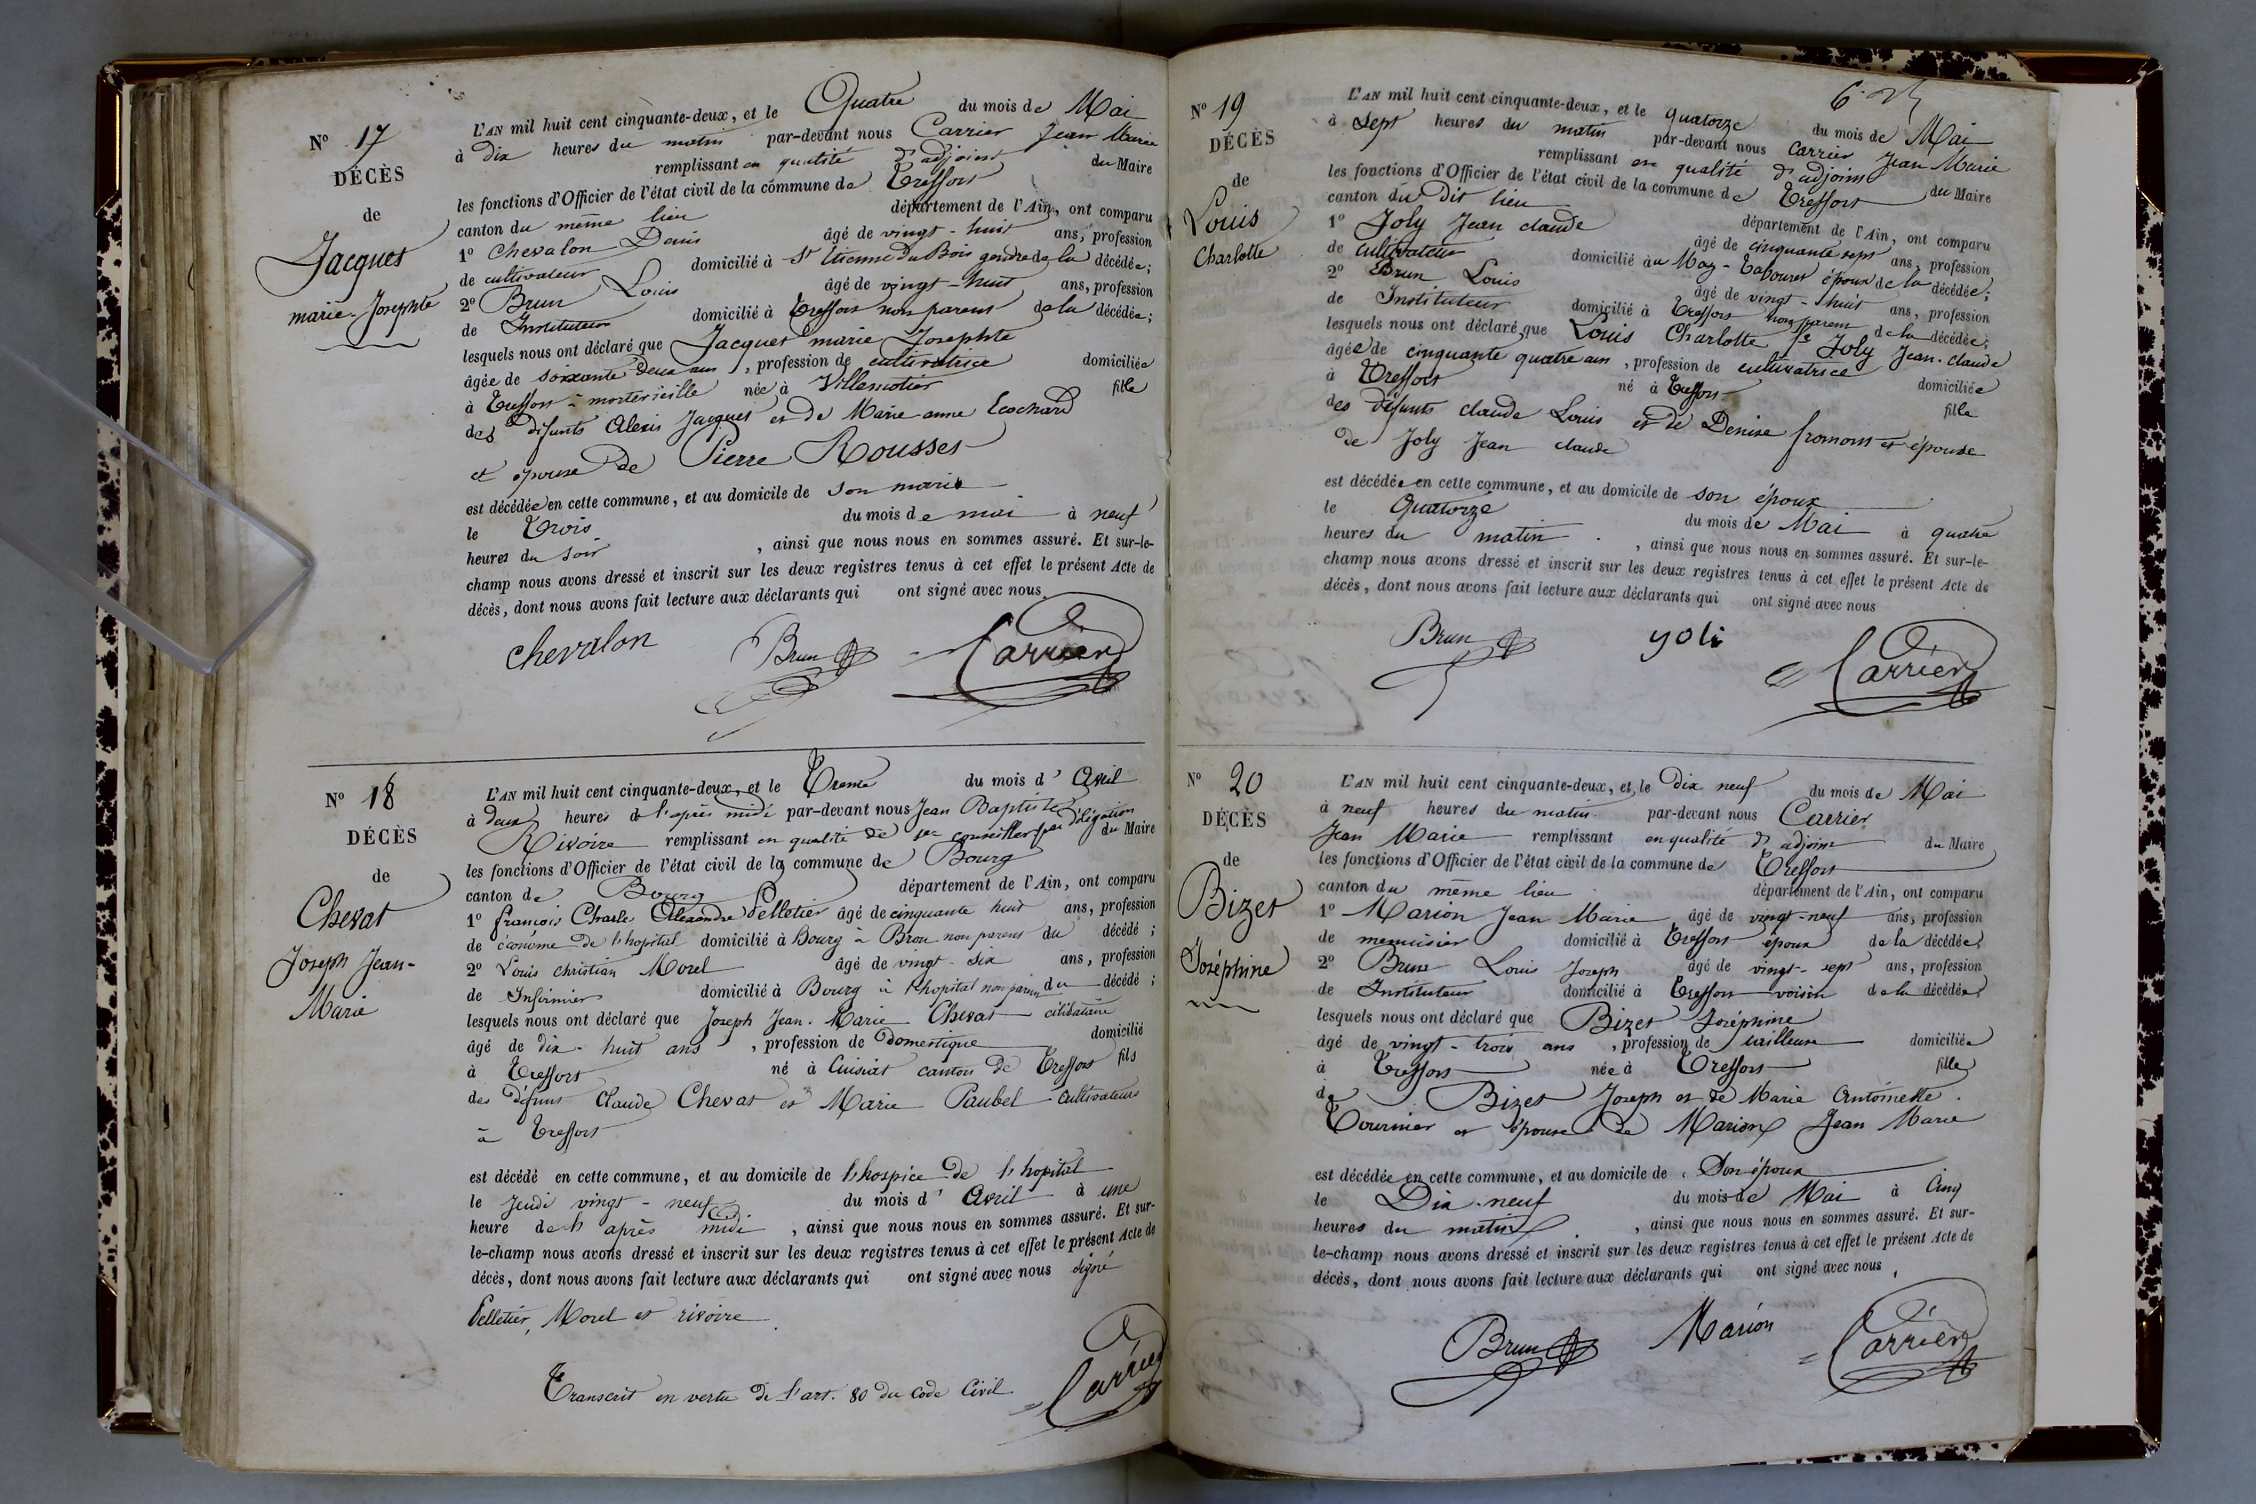 N° 17
DÉCÈS
de
Jacquet
marie-Josephte
L'AN mil huit cent cinquante-deux, et le Quatre du mois de Mai
à dix heures du matin par-devant nous Carrier Jean Marie
remplissant en qualité d'adjoint du Maire
les fonctions d'Officier de l'état civil de la commune de Treffort
canton du même lieu département de l'Ain, ont comparu
1° Chevalon Denis âgé de vingt-huit ans, profession
de cultivateur domicilié à St Etienne du Bois gendre de la décédée;
2° Brun Louis âgé de vingt-huit ans, profession
de Instituteur domicilié à Treffort non parent de la décédée;
lesquels nous ont déclaré que Jacquet marie Josephte
âgée de soixante deux ans, profession de cultivatrice domiciliée
à Treffort à montérieille née à Villemotier fille
des défunts Alexis Jacquet et de Marie anne Ecochard
et épouse de Pierre Rousset
est décédée en cette commune, et au domicile de son mari
le Trois du mois de mai à neuf
heures du soir, ainsi que nous nous en sommes assuré. Et sur-le-
champ nous avons dressé et inscrit sur les deux registres tenus à cet effet le présent Acte de
décès, dont nous avons fait lecture aux déclarants qui ont signé avec nous.
chevalon Brun Carrier
N° 18
DÉCÈS
de
Chevat
Joseph Jean-
Marie
L'AN mil huit cent cinquante-deux, et le Trente du mois d'Avril
à deux heures de l'après midi par-devant nous Jean Baptiste
Rivoire remplissant en qualité de 1er conseiller par délégation du Maire
les fonctions d'Officier de l'état civil de la commune de Bourg
canton de Bourg département de l'Ain, ont comparu
1° françois Charle Alexandre Pelletier âgé de cinquante huit ans, profession
de économe de l'hopital domicilié à Bourg à Brou non parent du décédé;
2° Louis christian Morel âgé de vingt-six ans, profession
de Infirmier domicilié à Bourg à l'hopital non parent du décédé;
lesquels nous ont déclaré que Joseph Jean-Marie Chevat célibataire
âgé de dix-huit ans, profession de Domestique domicilié
à Treffort né à Cuisiat canton de Treffort fils
des défunt Claude Chevat et Marie Paubel cultivateurs
à Treffort
est décédé en cette commune, et au domicile de l'hospice de l'hopital
le jeudi vingt-neuf du mois d'Avril à une
heure de l'après midi, ainsi que nous nous en sommes assuré. Et sur-
le-champ nous avons dressé et inscrit sur les deux registres tenus à cet effet le présent Acte de
décès, dont nous avons fait lecture aux déclarants qui ont signé avec nous signé
Pelletier, Morel et rivoire
Transcrit en vertu de l'art. 80 du Code Civil Carrier
N° 19
DÉCÈS
de
Louis
Charlotte
L'AN mil huit cent cinquante-deux, et le quatorze du mois de Mai
à sept heures du matin par-devant nous Carrier Jean Marie
remplissant en qualité d'adjoint du Maire
les fonctions d'Officier de l'état civil de la commune de Treffort
canton du Dit lieu département de l'Ain, ont comparu
1° Joly Jean claude âgé de cinquante sept ans, profession
de cultivateur domicilié au Maz-Tabouret époux de la décédée;
2° Brun Louis âgé de vingt-huit ans, profession
de Instituteur domicilié à Treffort non parent de la décédée;
lesquels nous ont déclaré que Louis Charlotte fe Joly Jean-claude
âgée de cinquante quatre ans, profession de cultivatrice domiciliée
à Treffort né à Treffort fille
des défunts claude Louis et de Denise fromont et épouse
de Joly Jean claude
est décédée en cette commune, et au domicile de son époux
le Quatorze du mois de Mai à quatre
heures du matin, ainsi que nous nous en sommes assuré. Et sur-le-
champ nous avons dressé et inscrit sur les deux registres tenus à cet effet le présent Acte de
décès, dont nous avons fait lecture aux déclarants qui ont signé avec nous
Brun yoli Carrier
N° 20
DÉCÈS
de
Bizet
Joséphine
L'AN mil huit cent cinquante-deux, et le Dix neuf du mois de Mai
à neuf heures du matin par-devant nous Carrier
Jean Marie remplissant en qualité d'adjoint du Maire
les fonctions d'Officier de l'état civil de la commune de Treffort
canton du même lieu département de l'Ain, ont comparu
1° Marion Jean Marie âgé de vingt-neuf ans, profession
de menuisier domicilié à Treffort époux de la décédée;
2° Brun Louis Joseph âgé de vingt-sept ans, profession
de Instituteur domicilié à Treffort voisin de la décédée;
lesquels nous ont déclaré que Bizet Joséphine
âgé de vingt-trois ans, profession de tailleuse domiciliée
à Treffort née à Treffort fille
de Bizet Joseph et de Marie Antoinette
Tournier et épouse de Marion Jean Marie
est décédée en cette commune, et au domicile de son époux
le Dix-neuf du mois de Mai à Cinq
heures du matin, ainsi que nous nous en sommes assuré. Et sur-
le-champ nous avons dressé et inscrit sur les deux registres tenus à cet effet le présent Acte de
décès, dont nous avons fait lecture aux déclarants qui ont signé avec nous,
Brun Marion Carrier